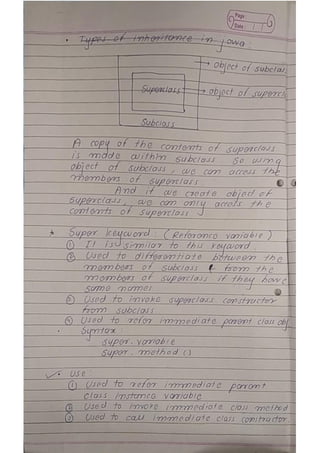 Page
Date 1.1
• Types of inheritance in java
object of subclass
Superclass
object of supercl
Subclass
A copy of the contents of superclass
is made within subclass So using
object of subclass, we can access the
members of superclass.
And if we create object of
superclass, we can only access the
contents of superclass
* Super keyword (Reference variable)
① It is similar to this keyword.
② Used to differentiate between the
members of subclass & from the
members of superclass if they have
same names
③ Used to invoke superclass constructor
from subclass
④ Used to refer immediate parent class obj
• Syntax
super.variable
super.method()
Use
① Used to refer immediate parent
class instance variable
② Used to invoke immediate class method
③ Used to call immediate class constructor